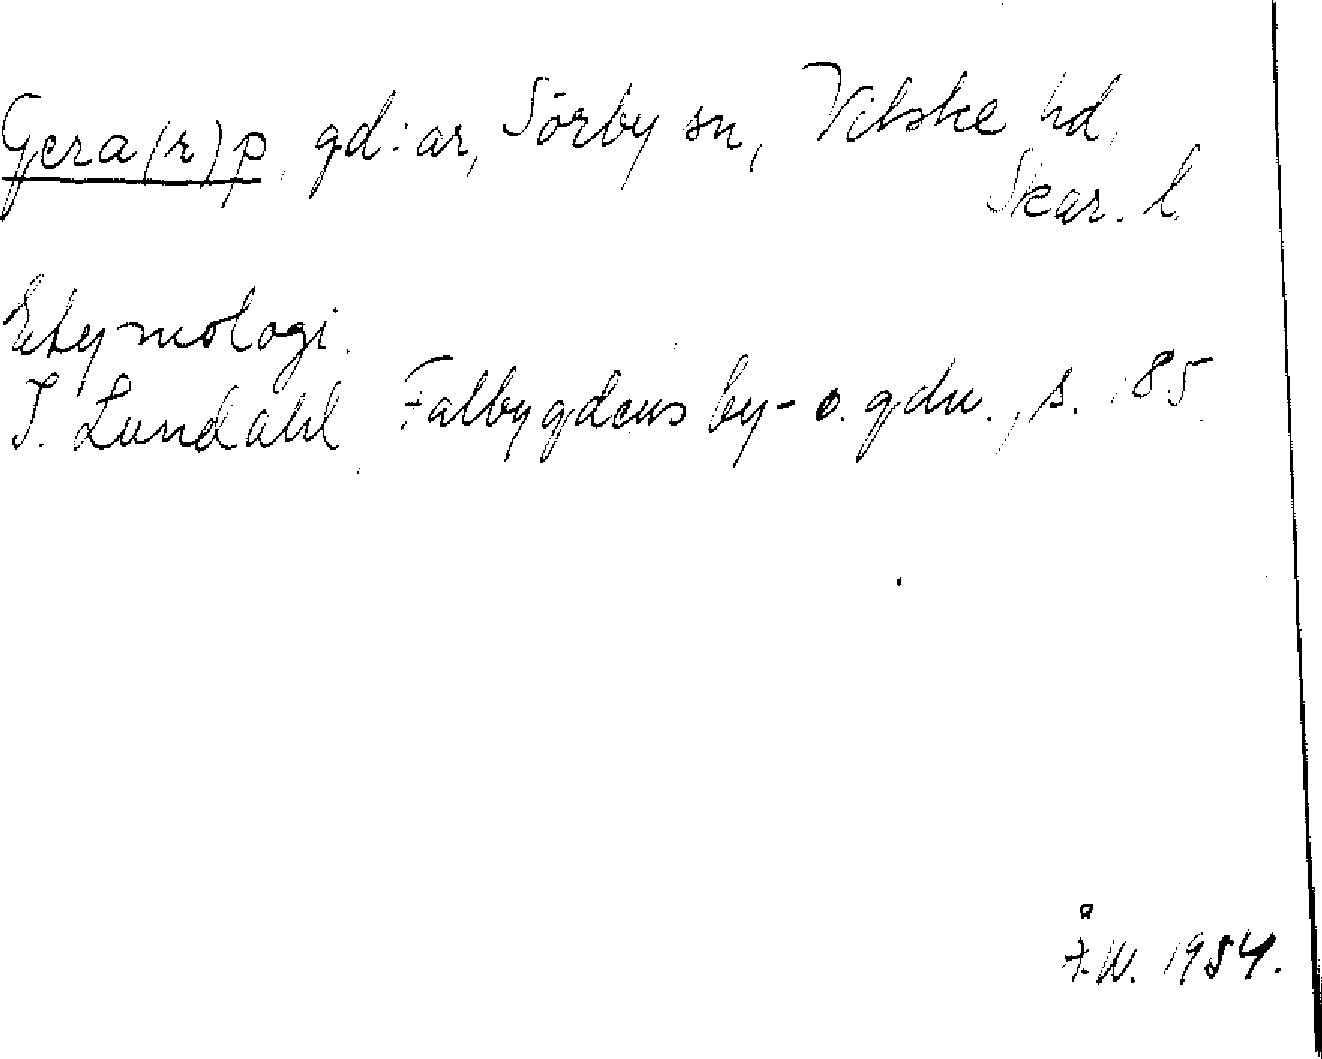 Gera(r)p, gd:ar, Sörby sn, Vilske hd,
Skar. l.
Etymologi.
I. Lundahl Falbygdens by- o. gdn., s. 85
Å.W. 1954.